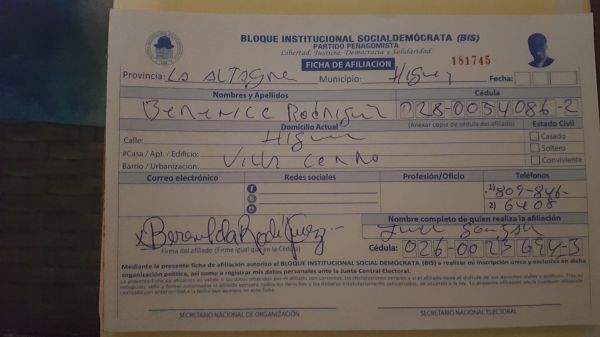 BLOQUE INSTITUCIONAL SOCIALDEMÓCRATA (BIS)
PARTIDO PEÑAGOMISTA
Libertad, Justicia, Democracia y Solidaridad
FICHA DE AFILIACION
181745
Provincia: LA ALTAGRA Municipio: Higuey Fecha:
Nombres y Apellidos Cédula
Berenice Rodriguez 028-0054086-2
Domicilio Actual (Anexar copia de cédula del afiliado) Estado Civil
Calle: Higuey Casado
#Casa / Apt. / Edificio: Soltero
Barrio / Urbanización: Villa Cerro Conviviente
Correo electrónico Redes sociales Profesión/Oficio Teléfonos
1) 809-846-
2) 6408
Berenilda Rodriguez
Firma del afiliado (Firme igual que en la Cédula)
Nombre completo de quien realiza la afiliación
Cédula: 026-0023694-3
Mediante la presente ficha de afiliación autorizo al BLOQUE INSTITUCIONAL SOCIAL DEMÓCRATA (BIS) a realizar mi inscripción única y exclusiva en dicha
organización política, así como a registrar mis datos personales ante la Junta Central Electoral.
SECRETARIO NACIONAL DE ORGANIZACIÓN SECRETARIO NACIONAL ELECTORAL